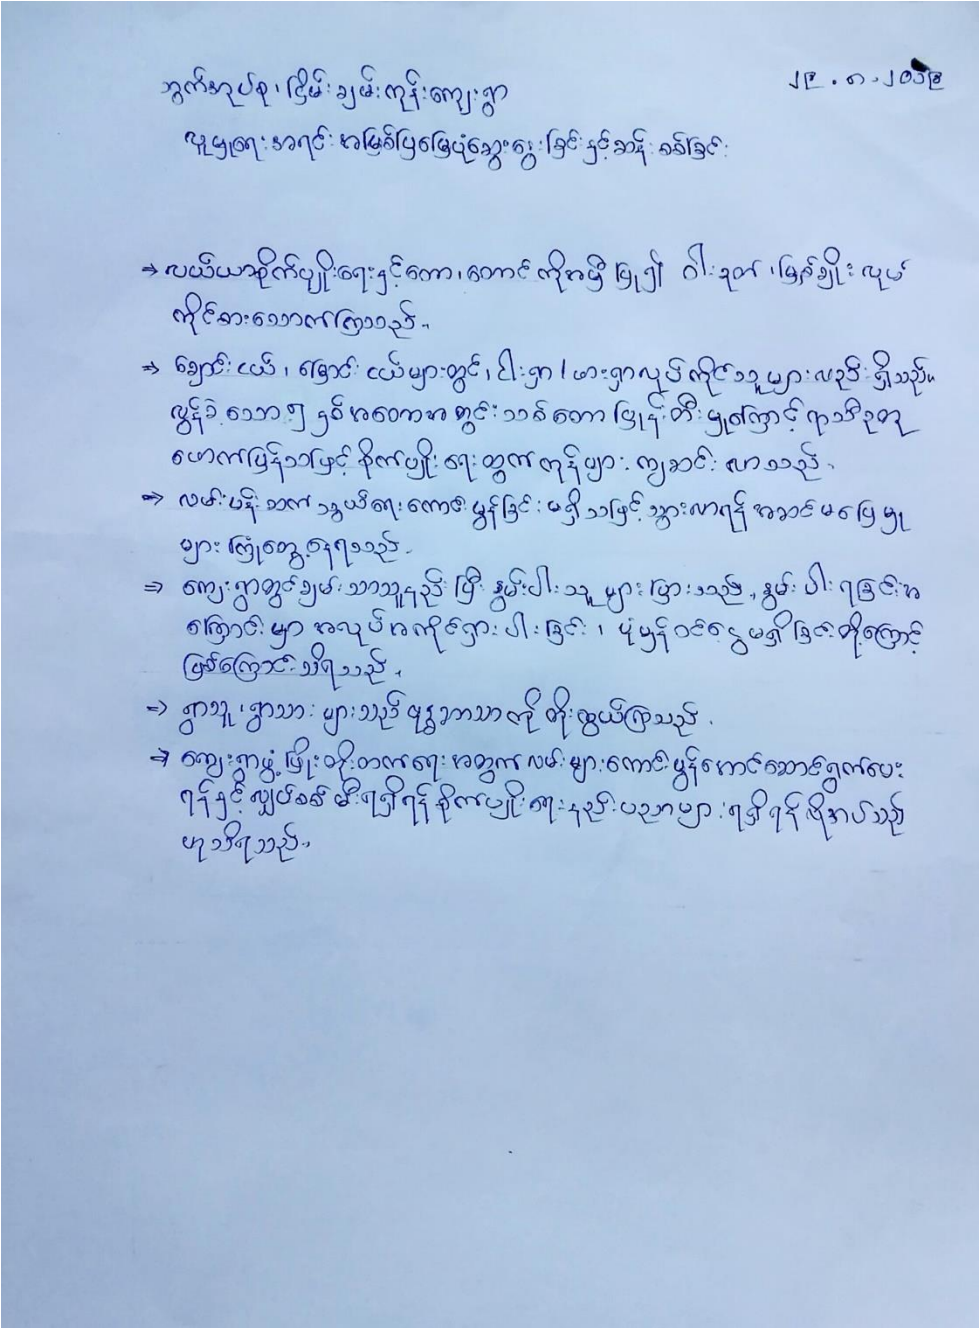 ၂၉.၈.၂၀၁၉
ဘွက်အုပ်စု၊ ငြိမ်းချမ်းကုန်းကျေးရွာ
လူမှုရေးအရင်းအမြစ်ပြမြေပုံရေးဆွဲခြင်းနှင့်ဆန်းစစ်ခြင်း
⇒ လယ်ယာစိုက်ပျိုးရေးနှင့်တော၊ တောင်ကိုအမှီပြု၍ ဝါးခုတ်၊ မျှစ်ချိုး လုပ်
ကိုင်စားသောက်ကြသည်။
⇒ ချောင်းငယ်၊ မြောင်းငယ်များတွင်၊ ငါးရှာ၊ ဖားရှာလုပ်ကိုင်သူများလည်းရှိသည်။
လွန်ခဲ့သော ၅ နှစ်အတောအတွင်း သစ်တောပြုန်းတီးမှုကြောင့် ရာသီဥတု
ဖောက်ပြန်သဖြင့် စိုက်ပျိုးရေးထွက်ကုန်များ ကျဆင်းလာသည်။
⇒ လမ်းပန်းဆက်သွယ်ရေးကောင်းမွန်ခြင်းမရှိသဖြင့် သွားလာရန်အဆင်မပြေမှု
များကြုံတွေ့နေရသည်။
⇒ ကျေးရွာတွင်ချမ်းသာသူနည်းပြီး နွမ်းပါးသူများများသည်။ နွမ်းပါးရခြင်းအ
ကြောင်းမှာ အလုပ်အကိုင်ရှားပါးခြင်း၊ ပုံမှန်ဝင်ငွေမရှိခြင်းတို့ကြောင့်
ဖြစ်ကြောင်းသိရသည်။
⇒ ရွာသူ၊ ရွာသားများသည် ဗုဒ္ဓဘာသာကိုကိုးကွယ်ကြသည်။
⇒ ကျေးရွာဖွံ့ဖြိုးတိုးတက်ရေးအတွက်လမ်းများကောင်းမွန်အောင်ဆောင်ရွက်ပေး
ရန်နှင့်လျှပ်စစ်မီးရရှိရန်စိုက်ပျိုးရေးနည်းပညာများရရှိရန်လိုအပ်သည်
ဟုသိရသည်။